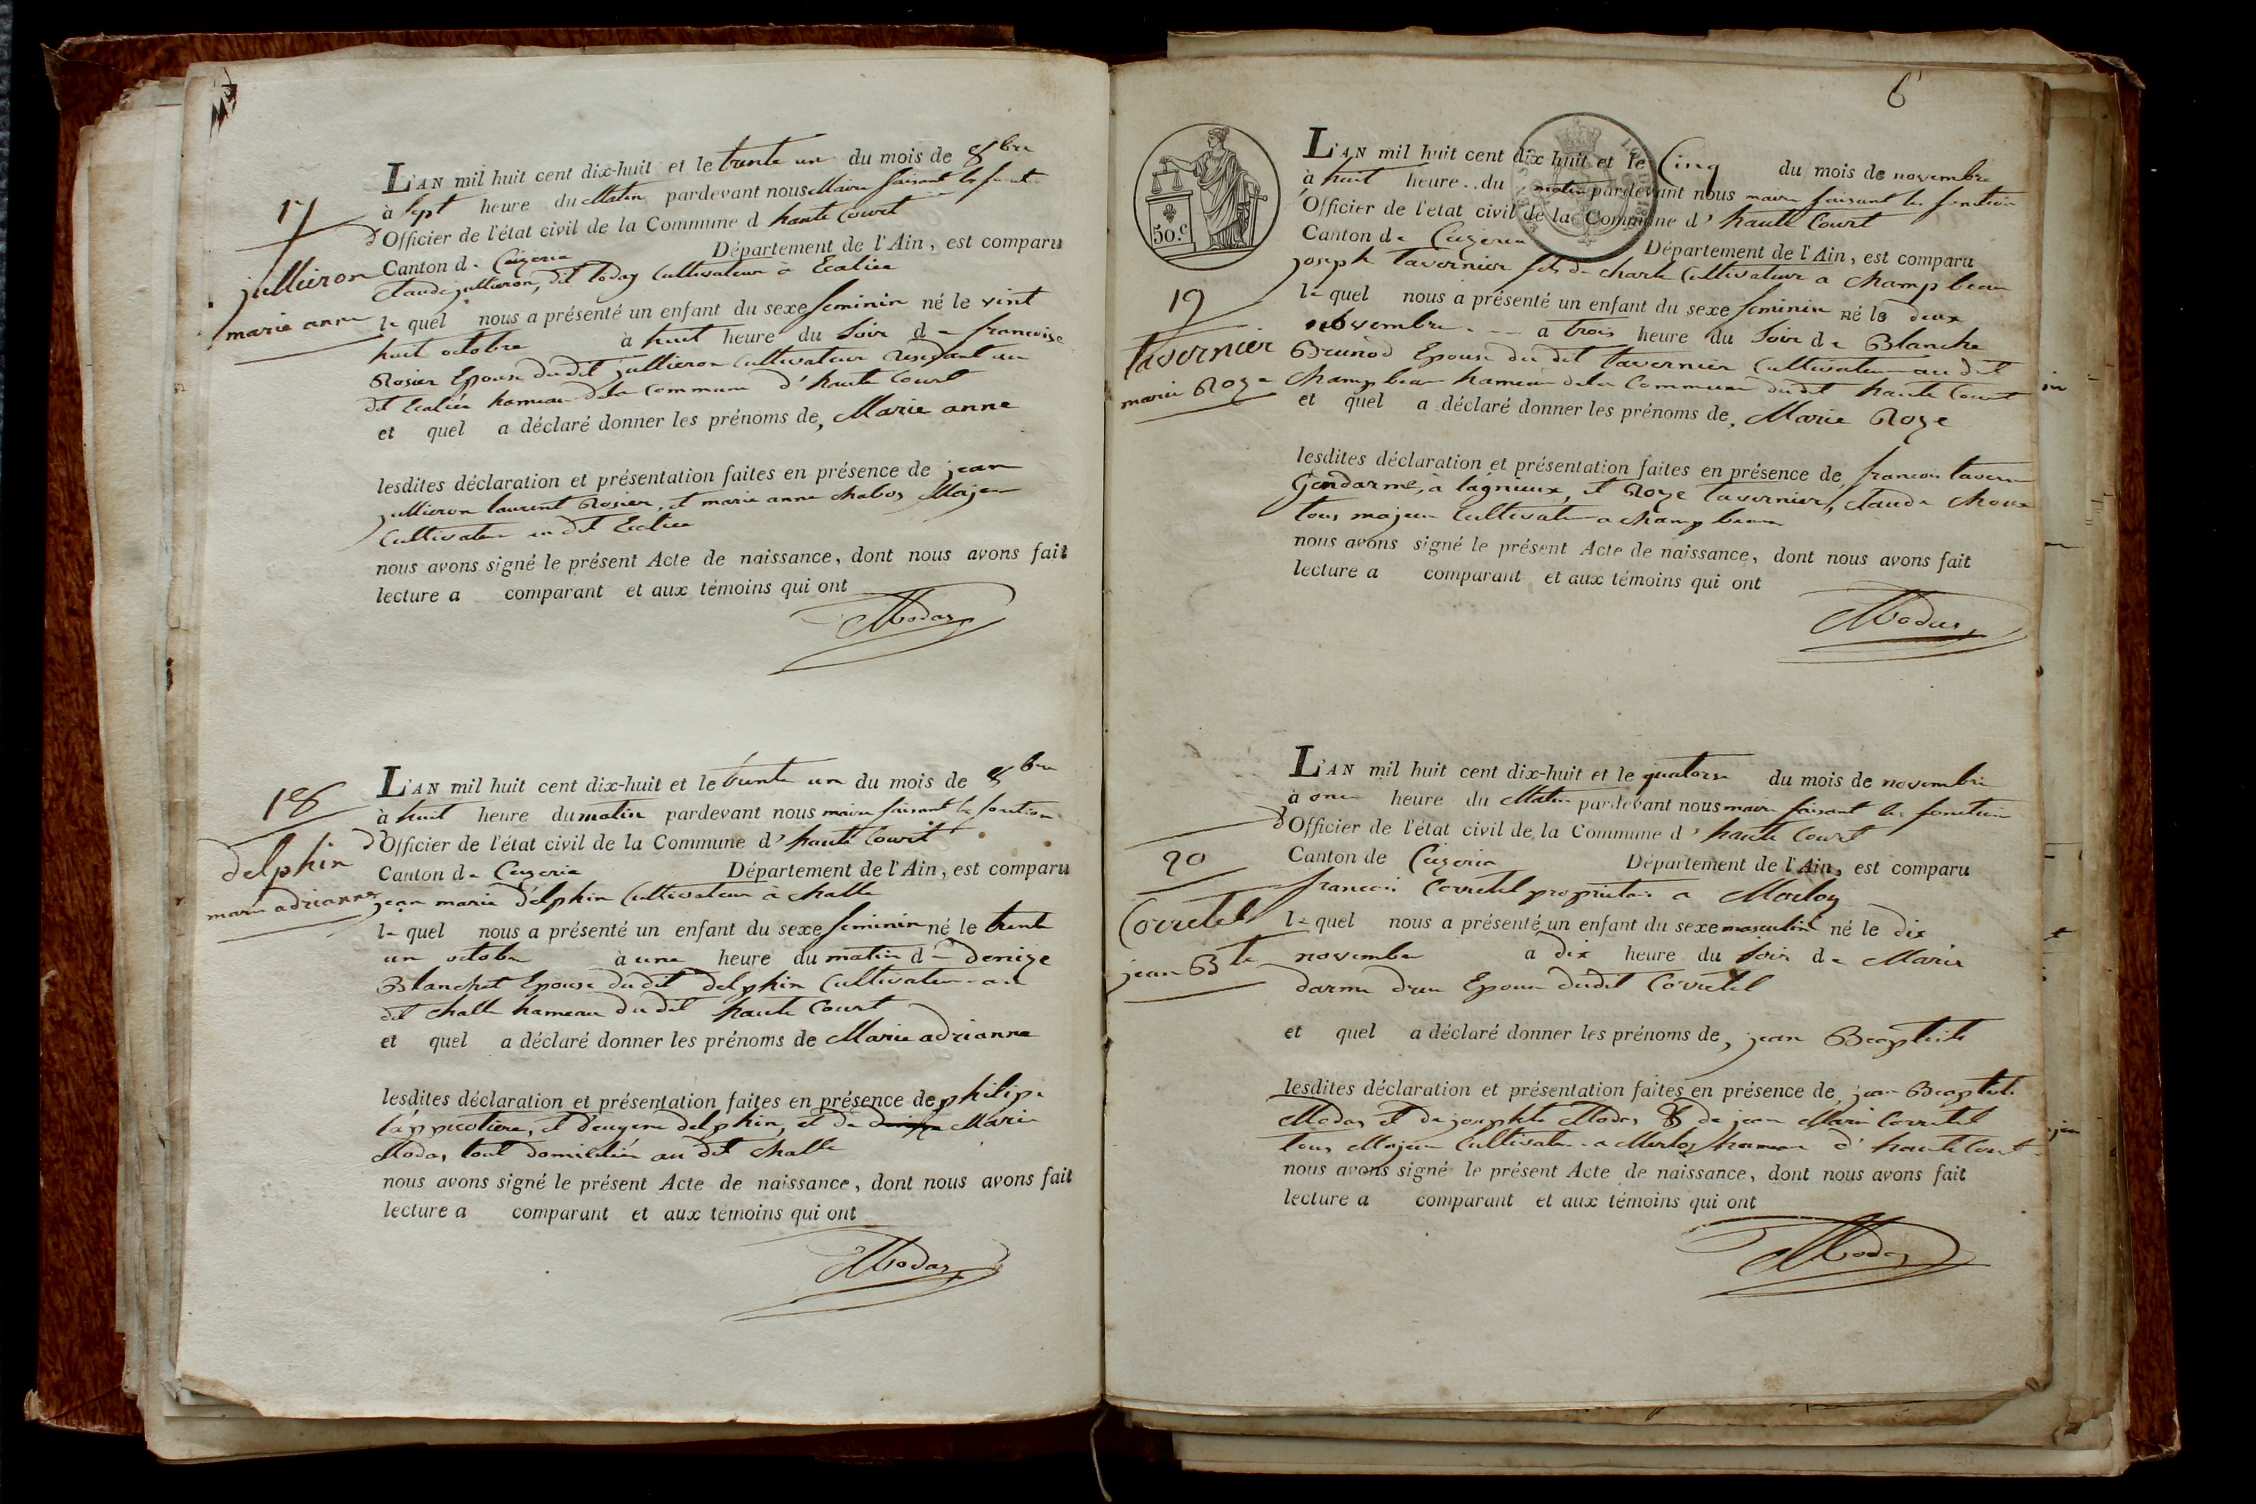 17
jullieron
marie anne
L'AN mil huit cent dix-huit et le trente un du mois de 8bre
à sept heure du Matin pardevant nous Maire faisant les fonct
d'Officier de l'état civil de la Commune d haute Court
Canton de Ceizeria Département de l'Ain, est comparu
Claude jullieron, dit today Cultivateur à Ecalies
le quel nous a présenté un enfant du sexe feminin né le vint
huit octobre à huit heure du Soir de francoise
Rosier Epouse du dit jullieron Cultivateur residant au
dit Ecaliés hameau de la commune d'haute Court
et quel a déclaré donner les prénoms de, Marie anne
lesdites déclaration et présentation faites en présence de jean
jullieron laurent Rosier, et marie anne chabos Majeu
Cultivateu au dit Ecalies
nous avons signé le présent Acte de naissance, dont nous avons fait
lecture a comparant et aux témoins qui ont
Modas
18
delphin
marie adrianne
L'AN mil huit cent dix-huit et le trente un du mois de 8bre
à huit heure du matin pardevant nous maire faisant les fonction
d'Officier de l'état civil de la Commune d' haute Court
Canton de Ceyzeria Département de l'Ain, est comparu
jean marie delphin Cultivateur à challe
le quel nous a présenté un enfant du sexe feminin né le trente
un octobre à une heure du matin de denize
Blanchet Epouse du dit delphin Cultivateur au
dit challe hameau du dit haute Court
et quel a déclaré donner les prénoms de Marie adrianne
lesdites déclaration et présentation faites en présence de philipe
et d'eugene delphin, et de Marie
Modas tout domiciliés au dit challe
nous avons signé le présent Acte de naissance, dont nous avons fait
lecture a comparant et aux témoins qui ont
Modas
6
50.c
19
tavernier
marie Roze
L'AN mil huit cent dix huit et le Cinq du mois de novembre
à huit heure du matin pardevant nous maire faisant les fonction
d'Officier de l'etat civil de la Commune d' haute Court
Canton de Ceizeria Département de l'Ain, est comparu
joseph tavernier fils de charle Cultivateur a Champ beau
le quel nous a présenté un enfant du sexe feminin né le deux
novembre a trois heure du Soir de Blanche
Brunod Epouse du dit tavernier Cultivateur au dit
Champ beau hameau de la Commune dudit haute Court
et quel a déclaré donner les prénoms de, Marie Roze
lesdites déclaration et présentation faites en présence de, francois tavern
Gendarme, à lagnieux, et Roze tavernier, claude
tous majeu Cultivateu a champ beau
nous avons signé le présent Acte de naissance, dont nous avons fait
lecture a comparant et aux témoins qui ont
Modas
20
Corretel
jean Bte
L'AN mil huit cent dix-huit et le quatorze du mois de novembre
à onze heure du Matin pardevant nous maire faisant les fonction
d'Officier de l'état civil de la Commune d' haute Court
Canton de Ceizeria Département de l'Ain, est comparu
francois Corretel proprietaire a
le quel nous a présenté un enfant du sexe masculin né le dix
novembre a dix heure du Soir de Marie
Epouse dudit Corretel
et quel a déclaré donner les prénoms de, jean Baptiste
lesdites déclaration et présentation faites en présence de, jean Baptiste
Modas et de josephte Modas & de jean Marie Corretel
tous Majeu Cultivateu a hameau d' haute Court
nous avons signé le présent Acte de naissance, dont nous avons fait
lecture a comparant et aux témoins qui ont
Modas